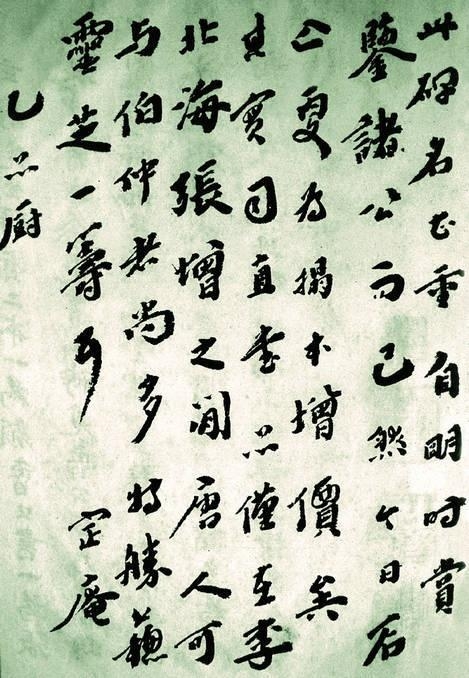 此碑名甚重自明时賞
鑒諸公而已然今日石
亡更为搨本增價矣
其實司直書品僅在李
北海張增之間唐人可
与伯仲者尚多特勝蘇
靈芝一籌耳 定庵
乙品厨